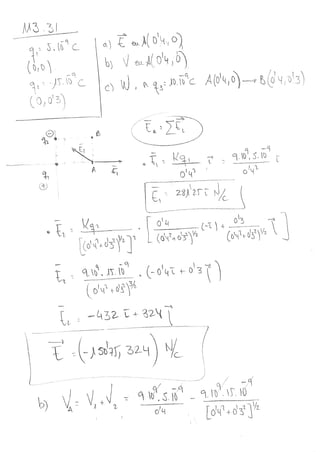 M3.31
q₁: 5.10⁻⁹ C
(0,0)
q₂: -15.10⁻⁹ C
(0,0'3)
a) E⃗ en A(0'4,0)
b) V en A(0'4,0)
c) W. a q₃: 10.10⁻⁹ C A(0'4,0) → B(0'4,0'3)
⊖
q₂
B
E⃗₂
A
E⃗₁
q₁
⊕
E⃗ₐ = ΣE⃗ᵢ
• E⃗₁ = Kq₁/0'4² i⃗ = 9.10⁹.5.10⁻⁹/0'4² i⃗
E⃗₁ = 281'25 i⃗ N/C
E⃗₂ = Kq₂/[(0'4²+0'3²)^½]² · [0'4/(0'4²+0'3²)^½ (-i⃗) + 0'3/(0'4²+0'3²)^½ j⃗]
E⃗₂ = 9.10⁹.15.10⁻⁹/(0'4²+0'3²)^3/2 · (-0'4 i⃗ + 0'3 j⃗)
E⃗₂ = -432 i⃗ + 324 j⃗
E⃗ = (-150'75, 324) N/C
b) Vₐ = V₁ + V₂ = 9.10⁹.5.10⁻⁹/0'4 - 9.10⁹.15.10⁻⁹/[0'4²+0'3²]^½